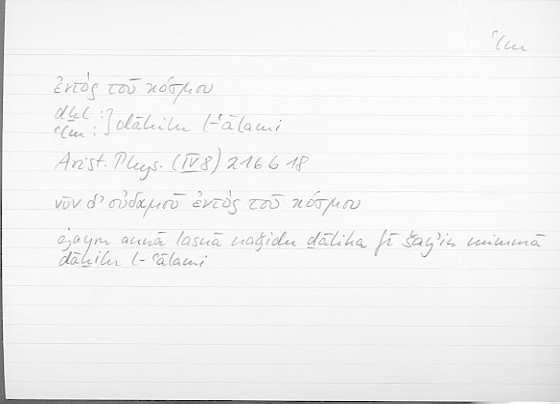 ʿlm
ἐντός τοῦ κόσμου
dḫl :] dāḫilu l-ʿālami
ʿlm :]
Arist. Phys. (IV 8) 216 b 18
νῦν δ' οὐδαμοῦ ἐντός τοῦ κόσμου
annā lasnā naǧidu ḏālika fī šayʾin mimmā
dāḫilu l-ʿālami